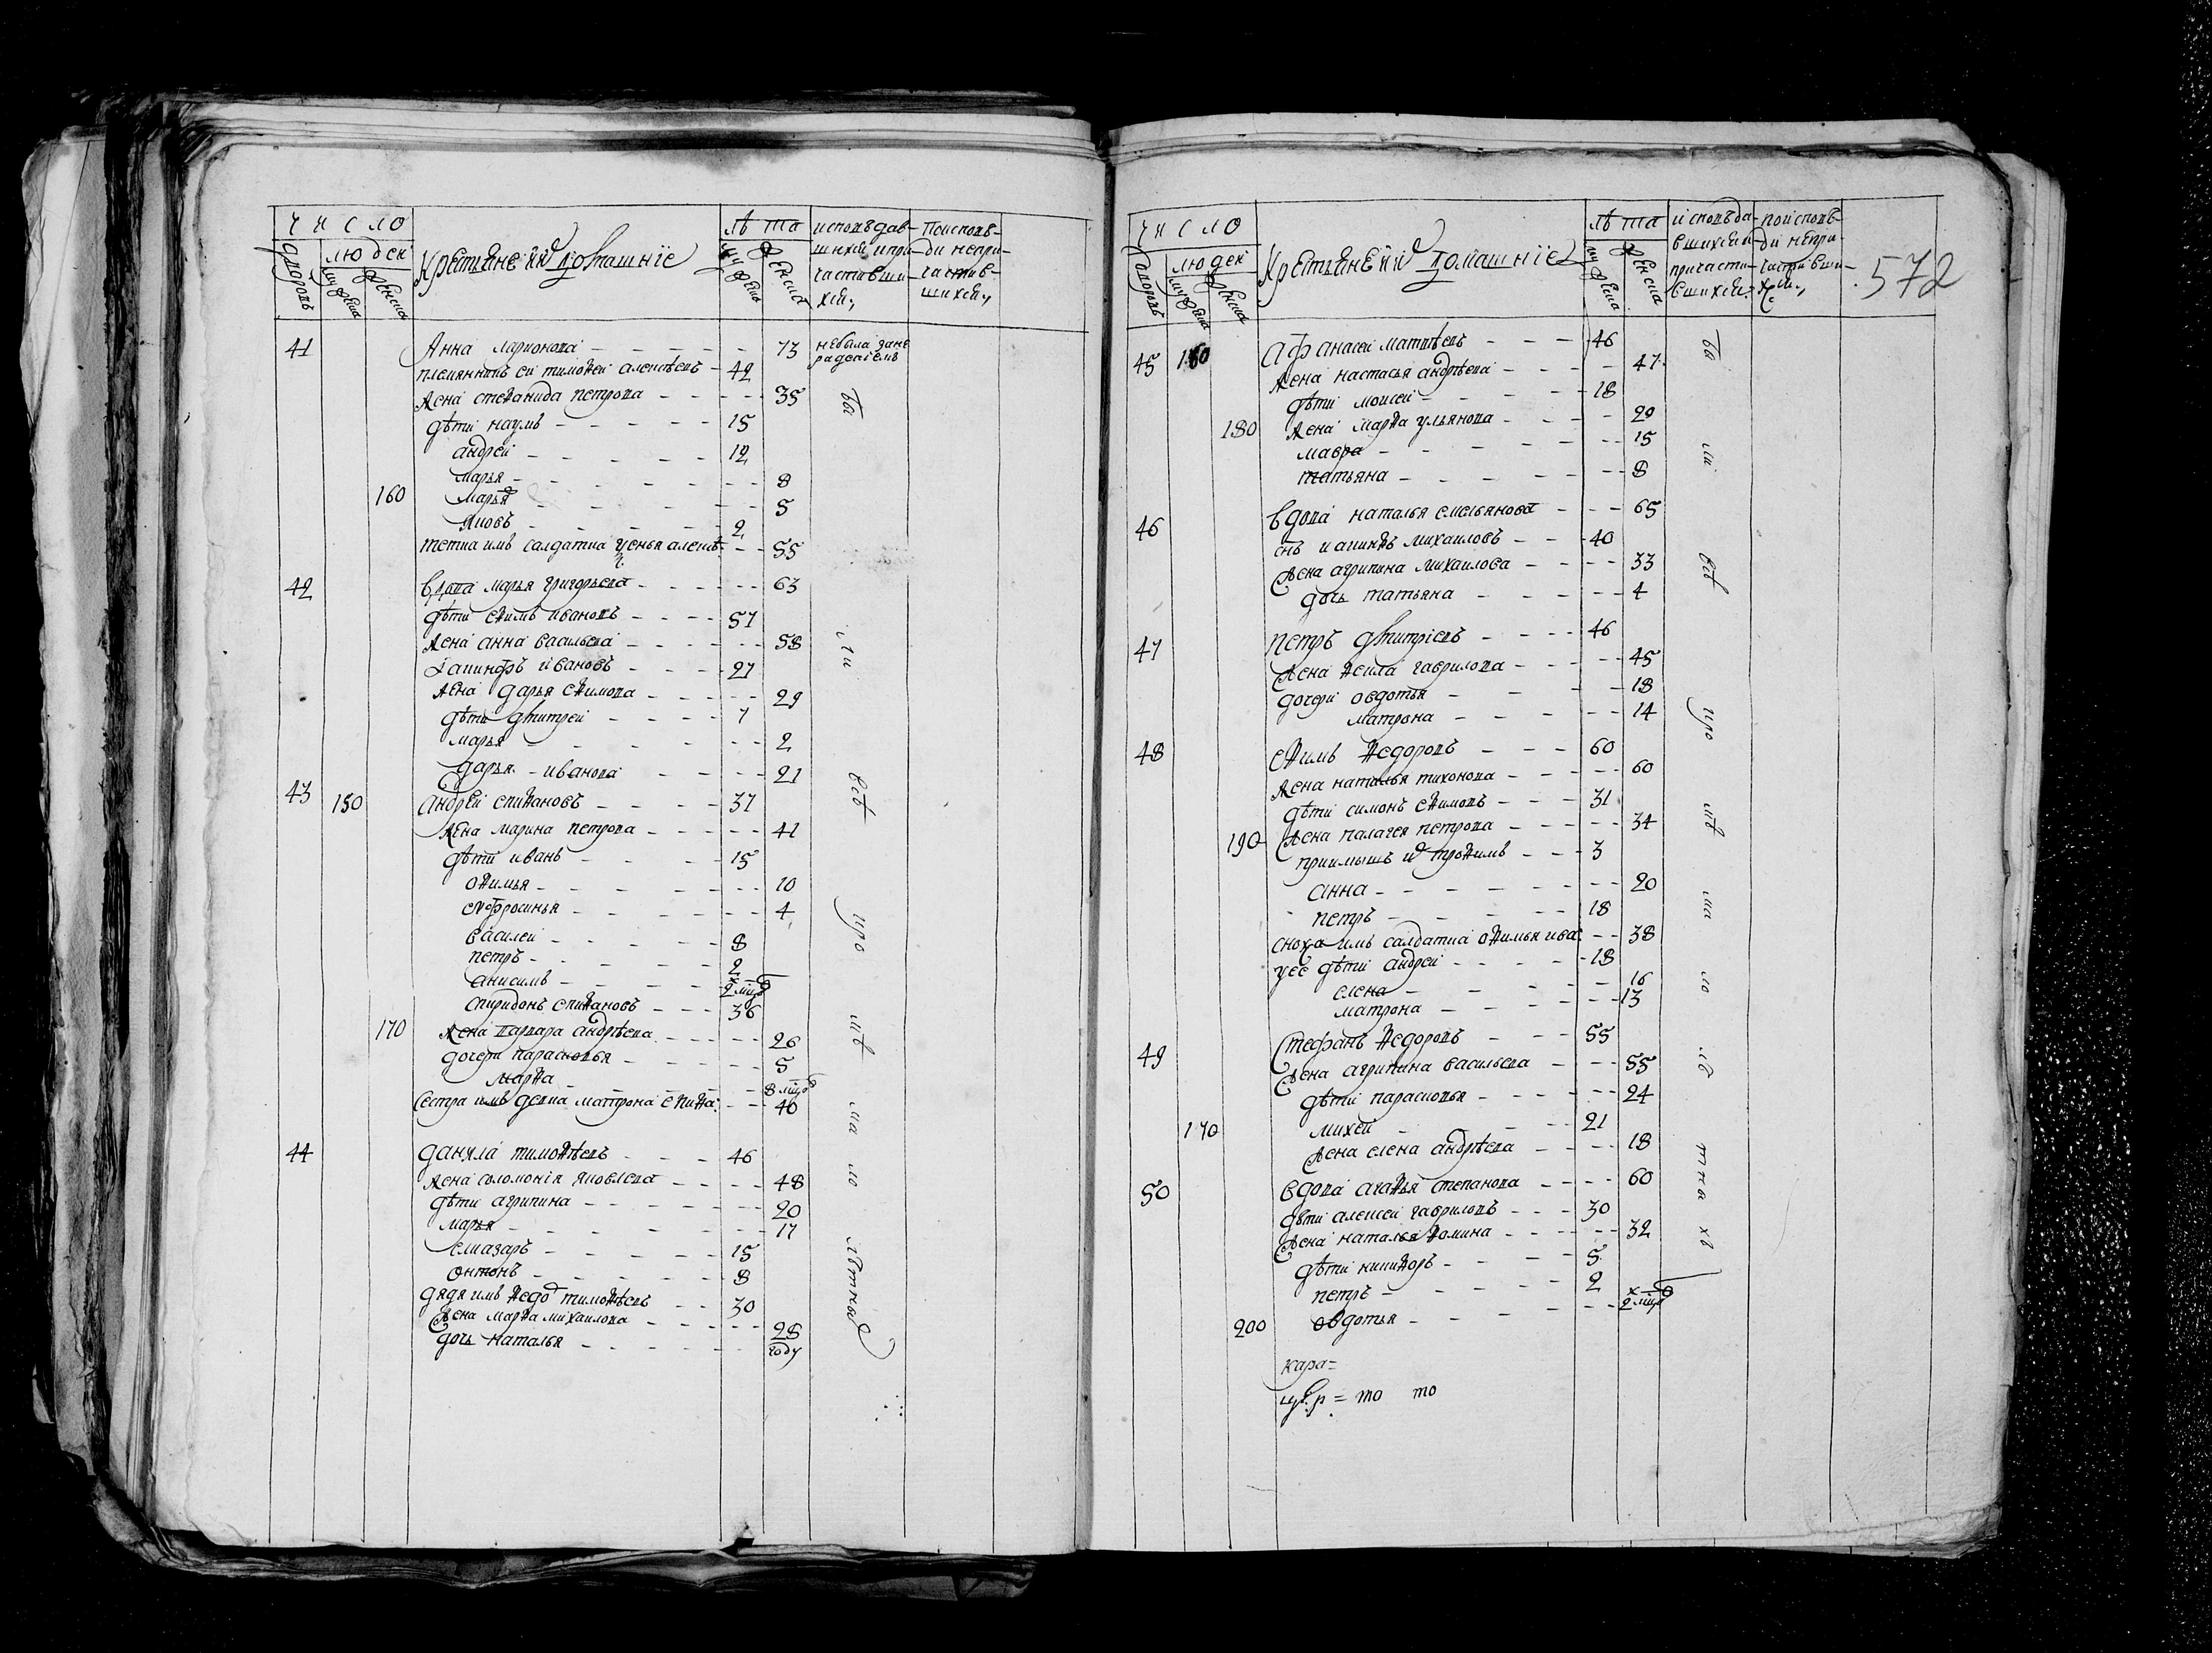 число
людей
дворовъ
мужеска
женска
крестьяне и ихъ домашніе
лѣта
мужеска
женска
исповѣдав-
шихся и при-
частивши-
хся,
поисповѣ-
ди непри-
частив-
шихся,
41 Анна ларионова - 73 небыла зане
радениемъ
племянникъ ей тимофей алексѣевъ - 42
жена степанида петрова - 35
дѣти наумъ - 15
андрей - 12
марья - 8
160 марья - 5
яковъ - 2
тетка имъ салдатка алексѣ - 55
42 вдова марья григорьева - 63
дѣти ефимъ ивановъ - 57
жена анна васильева - 58
иакинфъ ивановъ - 27
жена дарья ефимова - 29
дѣти дмитрей - 7
марья - 2
дарья иванова - 21
43 150 андрей епифановъ - 37
жена марина петрова - 41
дѣти иванъ - 15
офимья - 10
ефросинья - 4
василей - 8
петръ - 2
анисимъ - 2 мцъ
спиридонъ епифановъ - 36
170 жена варвара андрѣева - 26
дочери парасковья - 5
марфа - 8 мцъ
сестра имъ девка матрона епифа: - 40
44 данила тимофѣевъ - 46
жена соломонія яковлева - 48
дѣти агрипина - 20
марья - 17
елиазаръ - 15
онтонъ - 8
дядя имъ федо тимофѣевъ - 30
жена марфа михаилова - 28
дочь наталья - году
572
число
людей
дворовъ
мужеска
женска
крестьяне и ихъ домашніе
лѣта
мужеска
женска
исповѣда-
вшихся и
причасти-
вшихся,
поисповѣ-
ди непри-
частивши-
хся,
45 160 афанасей матвѣевъ - 46
жена настасья андрѣева - 47
дѣти моисей - 18
180 жена марфа ульянова - 20
мавра - 15
татьяна - 8
46 вдова наталья емельянова - 65
снъ иакинфъ михаиловъ - 40
жена агрипина михаилова - 33
дочь татьяна - 4
47 петръ дмитріевъ - 46
жена гаврилова - 45
дочери овдотья - 18
матрона - 14
48 ефимъ федоровъ - 60
жена наталья тихонова - 60
дѣти симонъ ефимовъ - 31
190 жена палагея петрова - 34
приимышъ ихъ трофимъ - 3
анна - 20
петръ - 18
сноха имъ салдатка офимья ива: - 38
у ее дѣти андрей - 18
елена - 16
матрона - 13
49 стефанъ федоровъ - 55
жена агрипина васильева - 55
дѣти парасковья - 24
170 михей - 21
жена елена андрѣева - 18
50 вдова агафья степанова - 60
дѣти алексей гавриловъ - 30
жена наталья фомина - 32
дѣти никифоръ - 5
петръ - 2
200 овдотья - 2 мцъ
кара=
то то